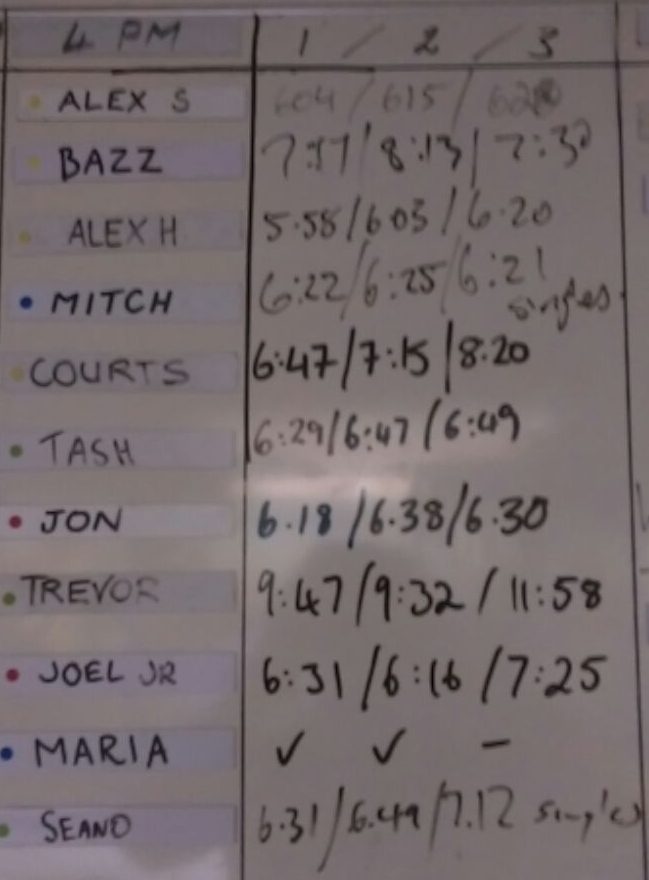 4 PM 1 / 2 / 3
ALEX S 604 / 615 /
BAZZ 7:17 / 8:13 / 7:30
ALEX H 5.58 / 603 / 6.20
MITCH 6:22 / 6:25 / 6:21 singles
COURTS 6:47 / 7:15 / 8.20
TASH 6:29 / 6:47 / 6:49
JON 6.18 / 6.38 / 6.30
TREVOR 9:47 / 9:32 / 11:58
JOEL JR 6:31 / 6:16 / 7:25
MARIA ✓ ✓ –
SEANO 6.31 / 6.49 / 7.12 singles